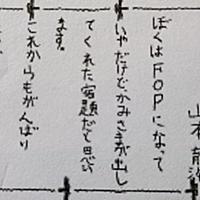 山本 育
ぼくはFOPになって
いやだけど、かみさまが出し
てくれた宿題だと思い
ます。
これからもがんばり